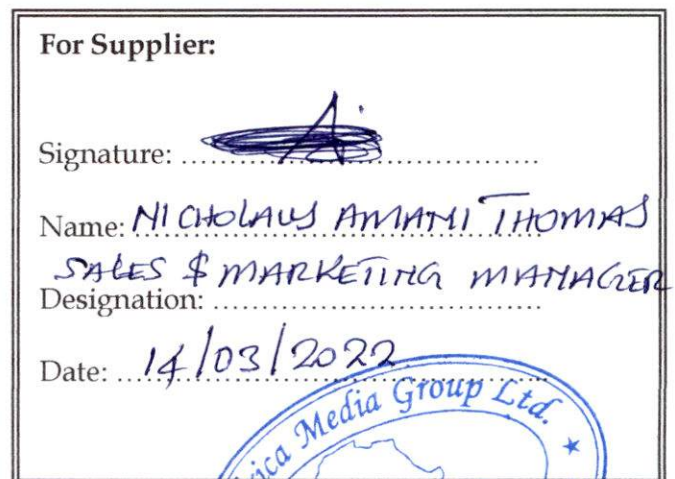 For Supplier:
Signature: ........................................
Name: NICHOLAUS AMANI THOMAS
SALES & MARKETING MANAGER
Designation: ........................................
Date: 14/03/2022
Media Group Ltd.